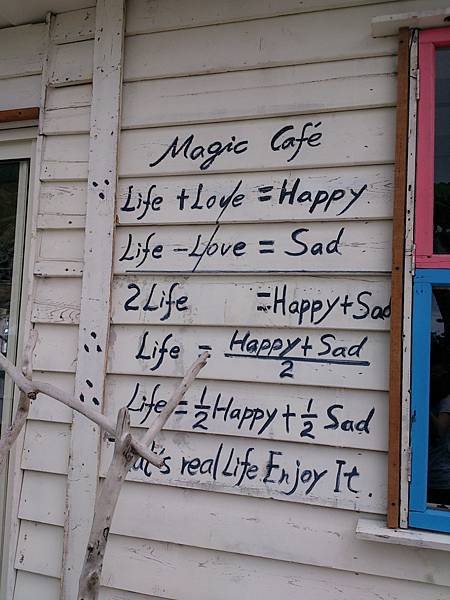 Magic Café
Life + Love = Happy
Life - Love = Sad
2 Life = Happy + Sad
Life = Happy + Sad / 2
Life = 1/2 Happy + 1/2 Sad
real Life Enjoy It.